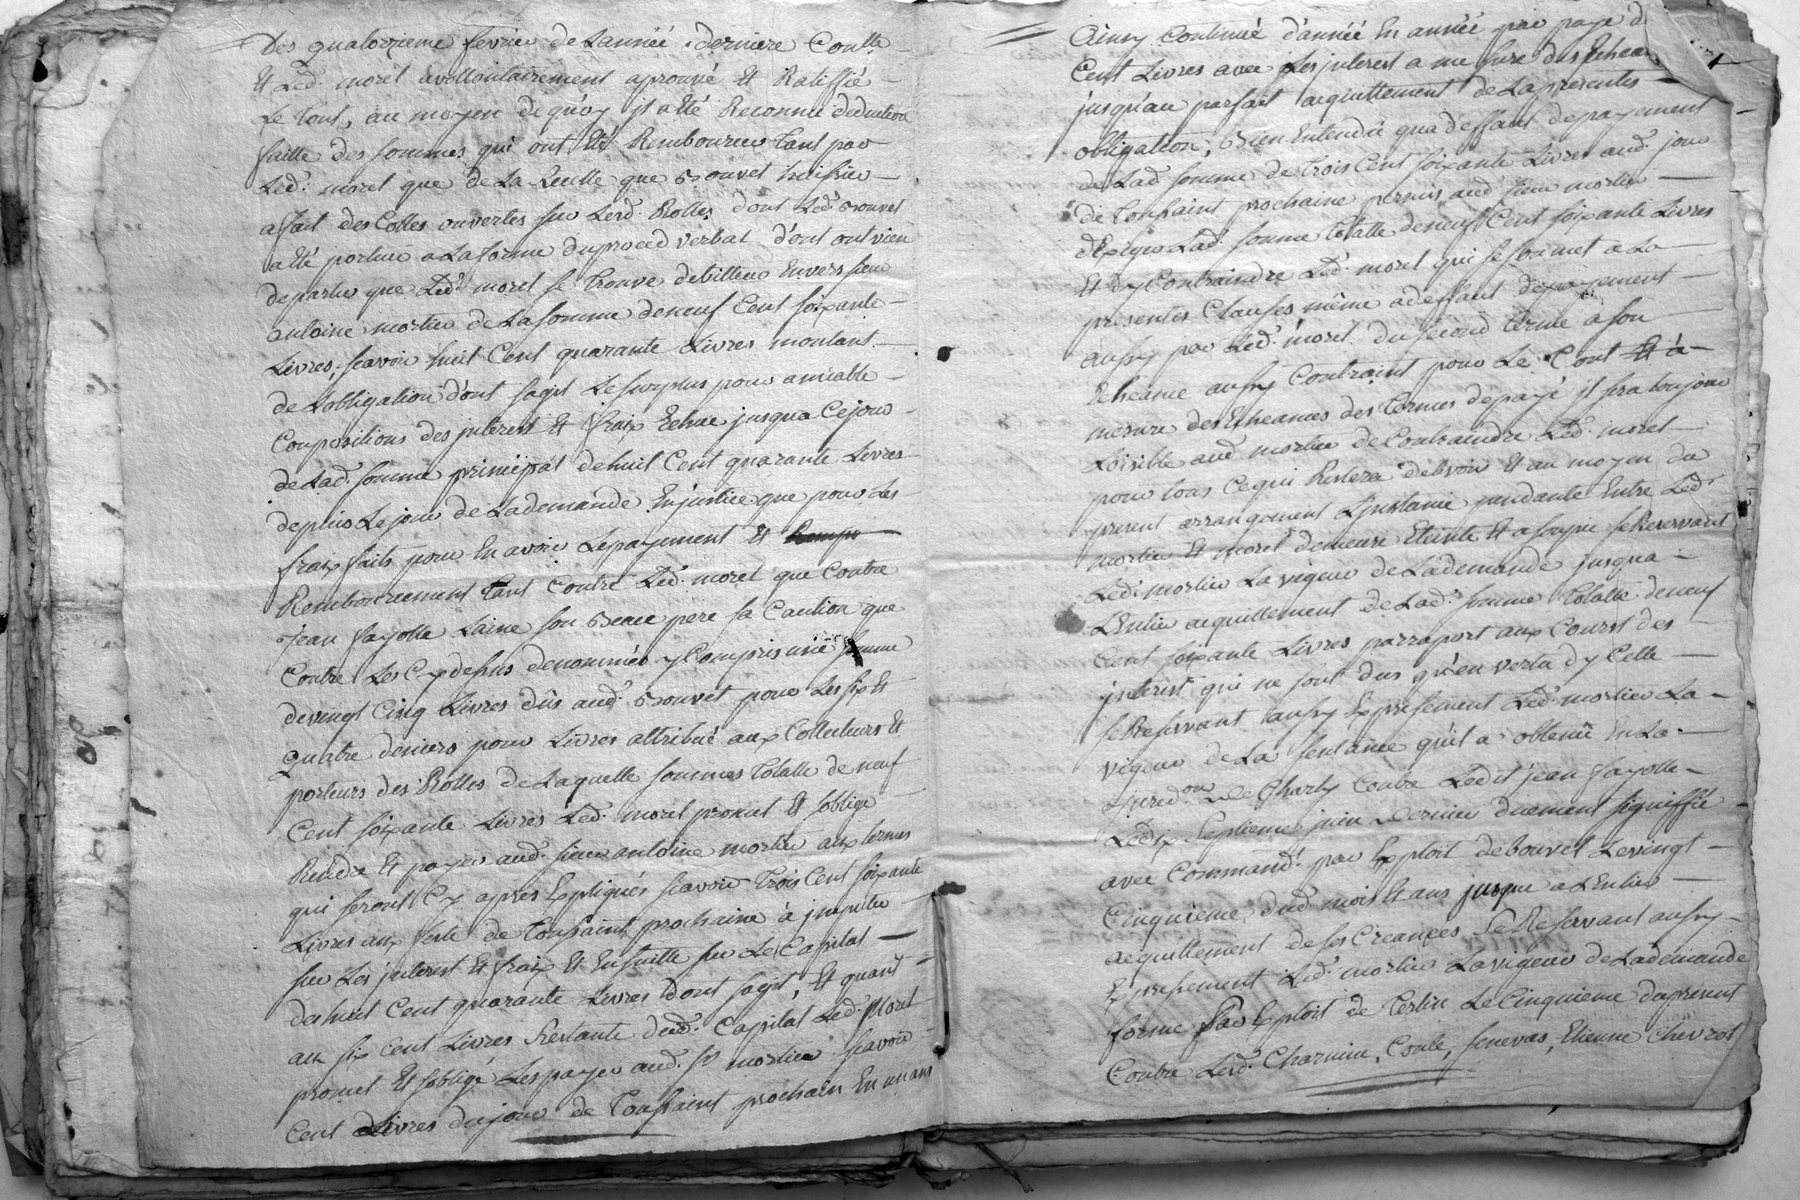 Des quatorzieme fevrier de Lannéé derniere Coutte
Et Led. morel avollontairement aprouvé Et Ratiffié
Le tout, au moyen de quoy jl a Eté Reconnu déduction
faitte des sommes qui ont Eté Rembourcee tant par
Led. morel que de La Reculte que Bouvet huissier
a fait des Cottes ouvertes sur Lesd. Rolles dont Led. Bouvet
a Eté porteur a La forme du proced verbal d'ont ont vien
de parler que Led. morel se trouve debitteur Envers sieur
antoine mortier de La somme de neuf Cent soixante
Livres, scavoir huit Cent quarante Livres montant
de Lobligation d'ont sagit Le surplus pour amiable
Compositions des jnterest Et fraix Echue jusqua Ce jour
de Lad. somme principal de huit Cent quarante Livres
depuis Le jour de La demande En justice que pour Les
fraix faits pour En avoir Le payement Et
Remboursement tant Contre Led. morel que Contre
jean fayolle Laine son Beau pere sa Caution que
Contre Les Cy dessus denommés y Compris une somme
de vingt Cinq Livres dûs aud. Bouvet pour Les six Et
quatre deniers pour Livres attribué aux Collecteurs Et
porteurs des Rolles de Laquelle sommes totalle de neuf
Cent soixante Livres Led. morel promet Et soblige
Rendre Et payer aud. sieur antoine mortier aux termes
qui seront Cy apres Expliqués scavoir trois Cent soixante
Livres aux feste de Toussaint prochaine à jmputer
sur Les jnterest Et fraix Et Ensuitte sur Le Capital
de huit Cent quarante Livres dont sagit, Et quant
aux six Cent Livres Restante dud. Capital Led. Morel
promet Et soblige Les payer aud. sr mortier scavoir
Cent Livres du jour de Toussaint prochain En un ans
Ainsy Continué d'annéé En annéé par paye d
Cent Livres avec Les jnterest a me sure des Echea
jusqu'au parfait acquittement de La presentes
obligation, Bien Entendu qua deffaut de payement
de Lad somme de trois Cent soixante Livres aud. jour
de Toussaint prochaine permis aud sieur mortier
d'Exiger Lad. somme totalle de neuf Cent soixante Livres
Et dy Contraindre Led. morel qui se soumet a La
presentes Clauses même a deffaut de payement
aussy par Led. morel du second terme a son
Echeance aussy Contraint pour Le tout Et à
mesure des Echeances des termes de payé jl sera toujour
Loisible aud mortier de Contraindre Led. morel
pour tous Ce qui Restera de devoir Et au moyen du
present arrangement Ljnstance pendante Entre Led.
mortier Et morel demeure Eteinte Et assoupie se Reservant
Led. mortier La vigeur de La demande jusqua
LEntier acquittement de Lad. somme totalle de neuf
Cent soixante Livres par raport aux Courst des
jnterest qui ne sont dus qu'en vertu dy Celle
se Reservant aussy Expressement Led. mortier La
vigeur de La sentance qu'il a obtenû En La
jured.on de Charly Contre Ledit jean fayolle
Le dix septieme juin dernier duement signiffié
avec Command.t par Exploit de bouvet Le vingt
Cinquieme dud. mois Et ans jusque a LEntier
acquittement de ses Creances se Reservant aussy
Expressement Led. mortier La vigeur de La demande
formé par Exploit de Le Cinquieme du present
Contre Lesd. Charvin, Conte, senevas, Etienne Chevrot